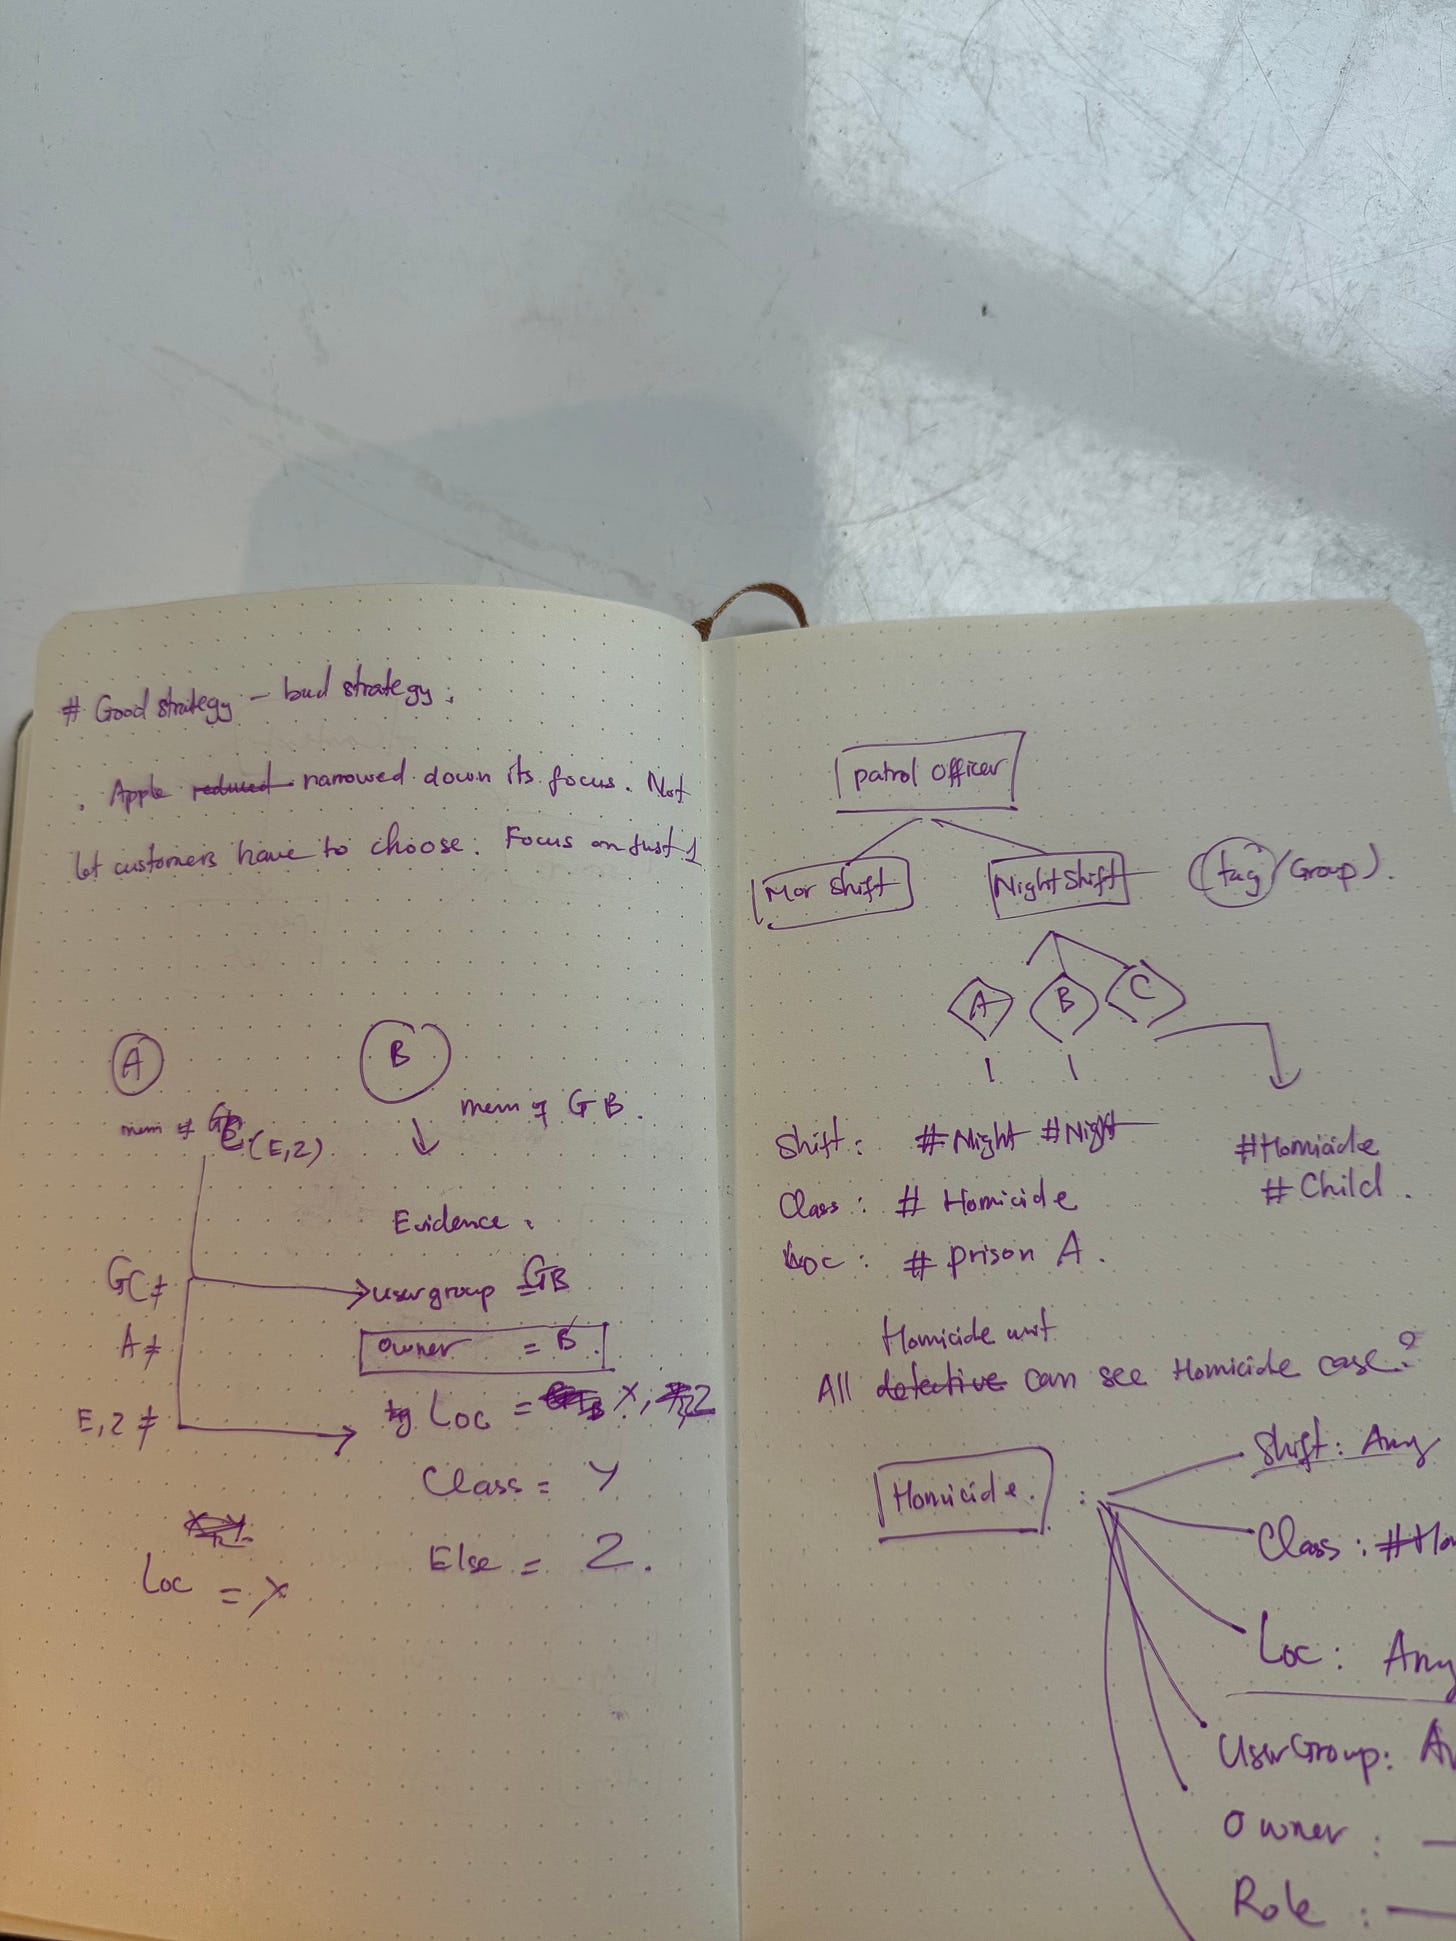 # Good strategy - bad strategy.
. Apple reduced narrowed down its focus. Not
let customers have to choose. Focus on just 1
A
B
mem of (E,2)
mem of GB.
Evidence :
GC ≠
usergroup = GB
A ≠
owner = B
E,2 ≠
Loc = X, 2
Class = Y
Else = Z.
Loc = X
patrol officer
Mor Shift
Night Shift
(tag/Group).
A
B
C
Shift: #Night #Night
#Homicide
Class: # Homicide
# Child.
Loc: # prison A.
Homicide unit
All detective can see Homicide case?
Homicide. :
Shift: Any
Class: #Ho
Loc: Any
UserGroup: An
Owner :
Role :